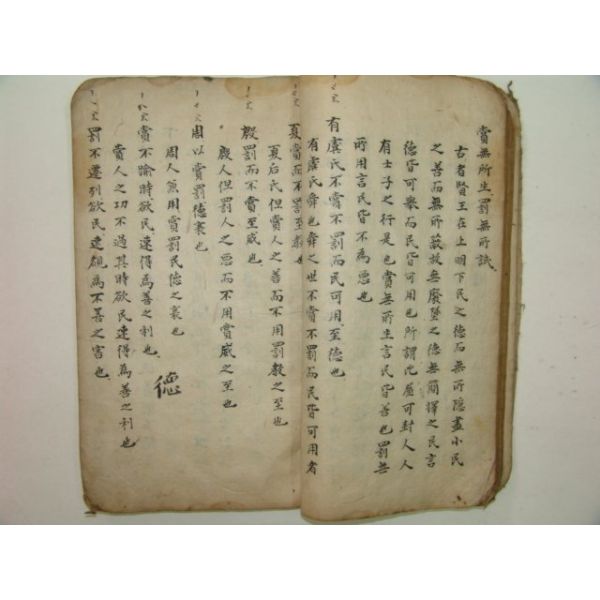 賞無所生罰無所試
古者賢王在上明下民之德而無所隱盡小民
之善而無所蔽故無廢墮之德無簡擇之民言
德皆可擧而民皆可用也所謂比屋可封人人
有士子之行是也賞無所生言民皆善也罰無
所用言民皆不爲惡也
有虞氏不賞不罰而民可用至德也
有虞氏舜也舜之世不賞不罰而民皆可用者
夏賞而不罰至教也
夏后氏但賞人之善而不用罰教之至也
殷罰而不賞至威也
殷人但罰人之惡而不用賞威之至也
周以賞罰德衰也
周人兼用賞罰民德之衰也
賞不踰時欲民速得爲善之利也
賞人之功不過其時欲民速得爲善之利也
罰不遷列欲民速覩爲不善之害也
德